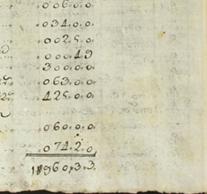 .006.0.0.
.034.0.0.
.002.5.0.
.000.4.9
.300.0.0.
.063.0.0.
.425.0.0.
.060.0.0.
.074.2.0.
1896.0.3.3.